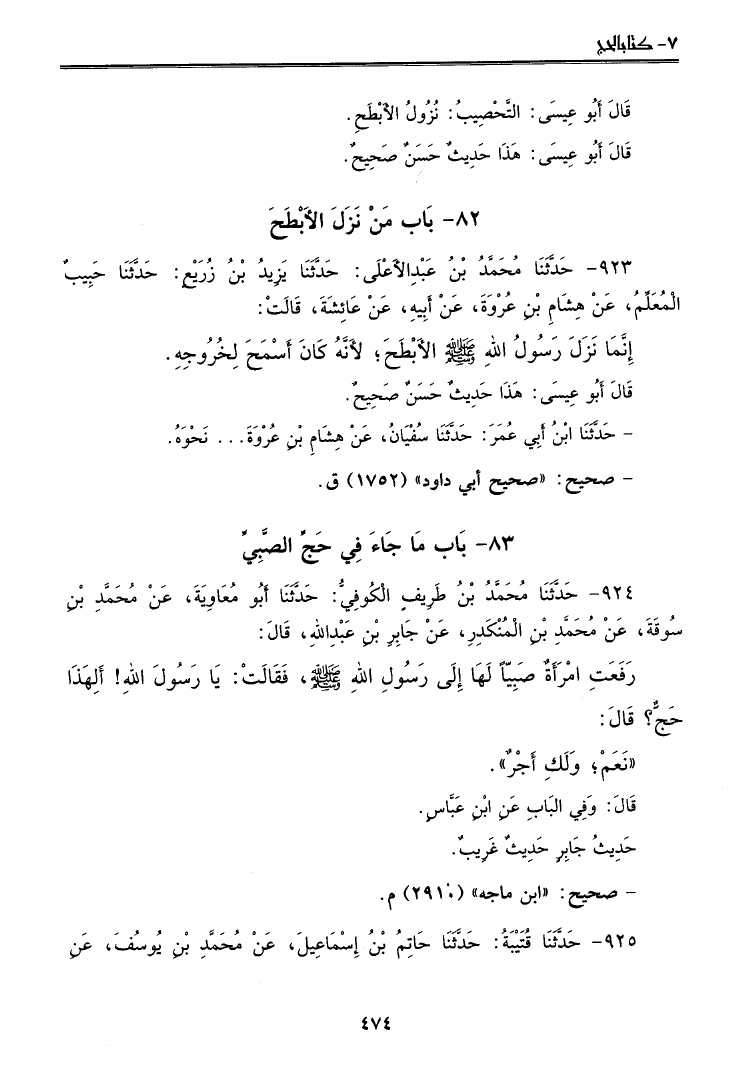 ٧- كتاب الحج
قَالَ أَبُو عِيسَى: التَّحْصِيبُ: نُزُولُ الأَبْطَحِ.
قَالَ أَبُو عِيسَى: هَذَا حَدِيثٌ حَسَنٌ صَحِيحٌ.
٨٢- بَاب مَنْ نَزَلَ الأَبْطَحَ
٩٢٣- حَدَّثَنَا مُحَمَّدُ بْنُ عَبْدِالأَعْلَى: حَدَّثَنَا يَزِيدُ بْنُ زُرَيْعٍ: حَدَّثَنَا حَبِيبٌ
الْمُعَلِّمُ، عَنْ هِشَامِ بْنِ عُرْوَةَ، عَنْ أَبِيهِ، عَنْ عَائِشَةَ، قَالَتْ:
إِنَّمَا نَزَلَ رَسُولُ اللهِ ﷺ الأَبْطَحَ؛ لأَنَّهُ كَانَ أَسْمَحَ لِخُرُوجِهِ.
قَالَ أَبُو عِيسَى: هَذَا حَدِيثٌ حَسَنٌ صَحِيحٌ.
- حَدَّثَنَا ابْنُ أَبِي عُمَرَ: حَدَّثَنَا سُفْيَانُ، عَنْ هِشَامِ بْنِ عُرْوَةَ... نَحْوَهُ.
- صحيح: «صحيح أبي داود» (١٧٥٢) ق.
٨٣- بَاب مَا جَاءَ فِي حَجِّ الصَّبِيِّ
٩٢٤- حَدَّثَنَا مُحَمَّدُ بْنُ طَرِيفٍ الْكُوفِيُّ: حَدَّثَنَا أَبُو مُعَاوِيَةَ، عَنْ مُحَمَّدِ بْنِ
سُوقَةَ، عَنْ مُحَمَّدِ بْنِ الْمُنْكَدِرِ، عَنْ جَابِرِ بْنِ عَبْدِاللهِ، قَالَ:
رَفَعَتِ امْرَأَةٌ صَبِيّاً لَهَا إِلَى رَسُولِ اللهِ ﷺ، فَقَالَتْ: يَا رَسُولَ اللهِ! أَلِهَذَا
حَجٌّ؟ قَالَ:
«نَعَمْ؛ وَلَكِ أَجْرٌ».
قَالَ: وَفِي البَابِ عَنِ ابْنِ عَبَّاسٍ.
حَدِيثُ جَابِرٍ حَدِيثٌ غَرِيبٌ.
- صحيح: «ابن ماجه» (٢٩١٠) م.
٩٢٥- حَدَّثَنَا قُتَيْبَةُ: حَدَّثَنَا حَاتِمُ بْنُ إِسْمَاعِيلَ، عَنْ مُحَمَّدِ بْنِ يُوسُفَ، عَنِ
٤٧٤